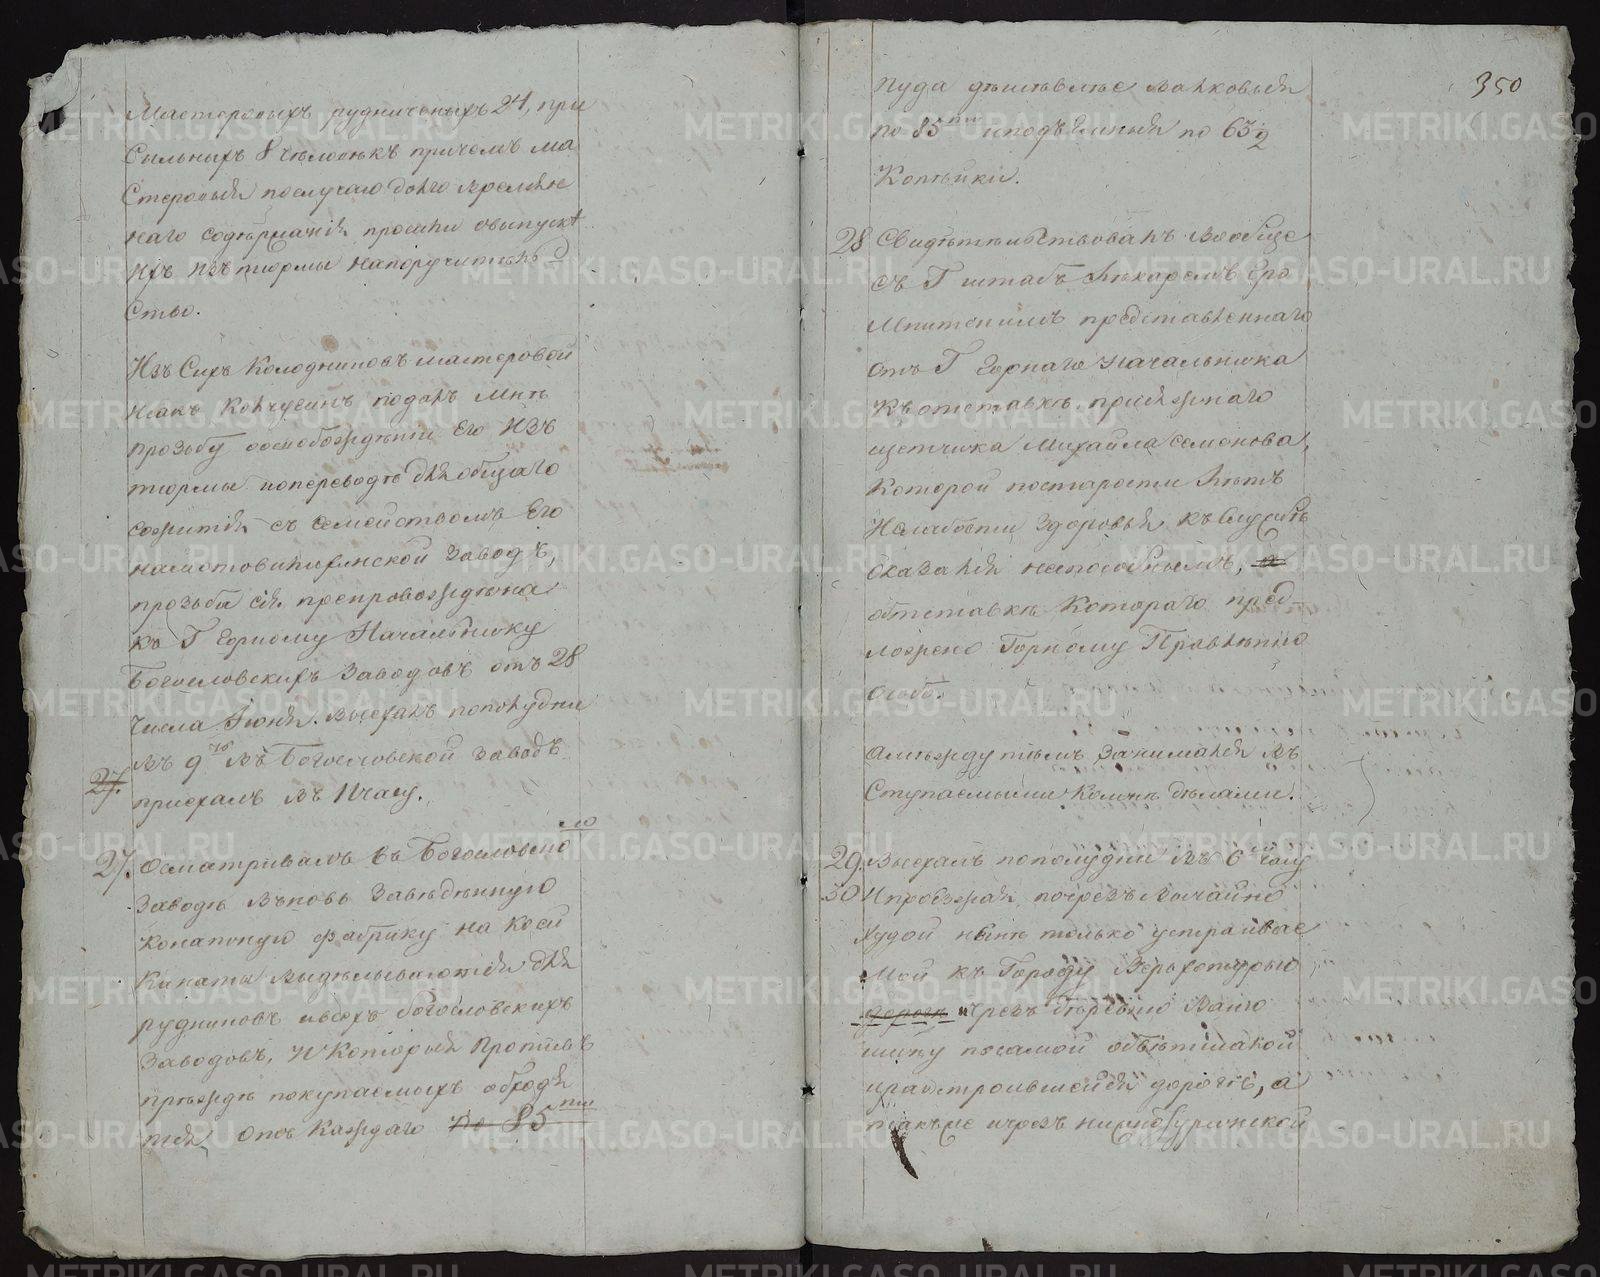 Мастеровыхъ рудничныхъ 24, при
Сыльныхъ 8 человѣкъ причемъ ма
Стеровыя послучаю долго времянѣ
наго содержания просили овыпускѣ
Ихъ изъ тюрмы напоручитель
Ство.
Изъ Сихъ Колодниковъ мастеровой
Исакъ подалъ мнѣ
прозьбу обосвобожденіи Его Изъ
тюрмы ипереводе для общаго
сожития съ семействомъ Его
на заводъ,
прозьба сія препровождена
къ Г Горному Начальнику
Богословскихъ Заводовъ отъ 28
числа Іюня. Выехалъ пополудни
въ 9 въ Богословской заводъ
приехалъ въ 11 часу.
27.
27. Осматривалъ въ Богословско
мо
Заводе вновь Заведенную
Конатную фабрику на коей
Канаты выделываются для
рудниковъ ивсехъ богословскихъ
Заводовъ, И Которыя Противъ
прежде покупаемыхъ обходя
тся отъ Каждаго по 85
350
пуда дешевле Валковыя
по 85 по 63 1/2
Копѣйки.
28 Свидетельствовалъ Вообще
съ Г штабъ Лекаремъ Гра
представленнаго
отъ Г Горнаго Начальника
Къ отставкѣ присяжнаго
щетчика Михайла Семенова,
Которой постарости Летъ
Ислабости Здоровья къ Службѣ
оказался неспособнымъ, а
обтставкѣ Котораго пред
ложено Горному Правлению
особо.
Амежду темъ Занимался въ
Ступаемыми Комнѣ делами.
29. Выехалъ пополудни въ 6 часу
30 Ипроезжая почрезвычайно
худой нынѣ только устраивае
мой къ Городу Верхотурью
дороге чрезъ
шину посамой
ираспроившейся дороге, а
такъже ичрезъ нижнотуринской